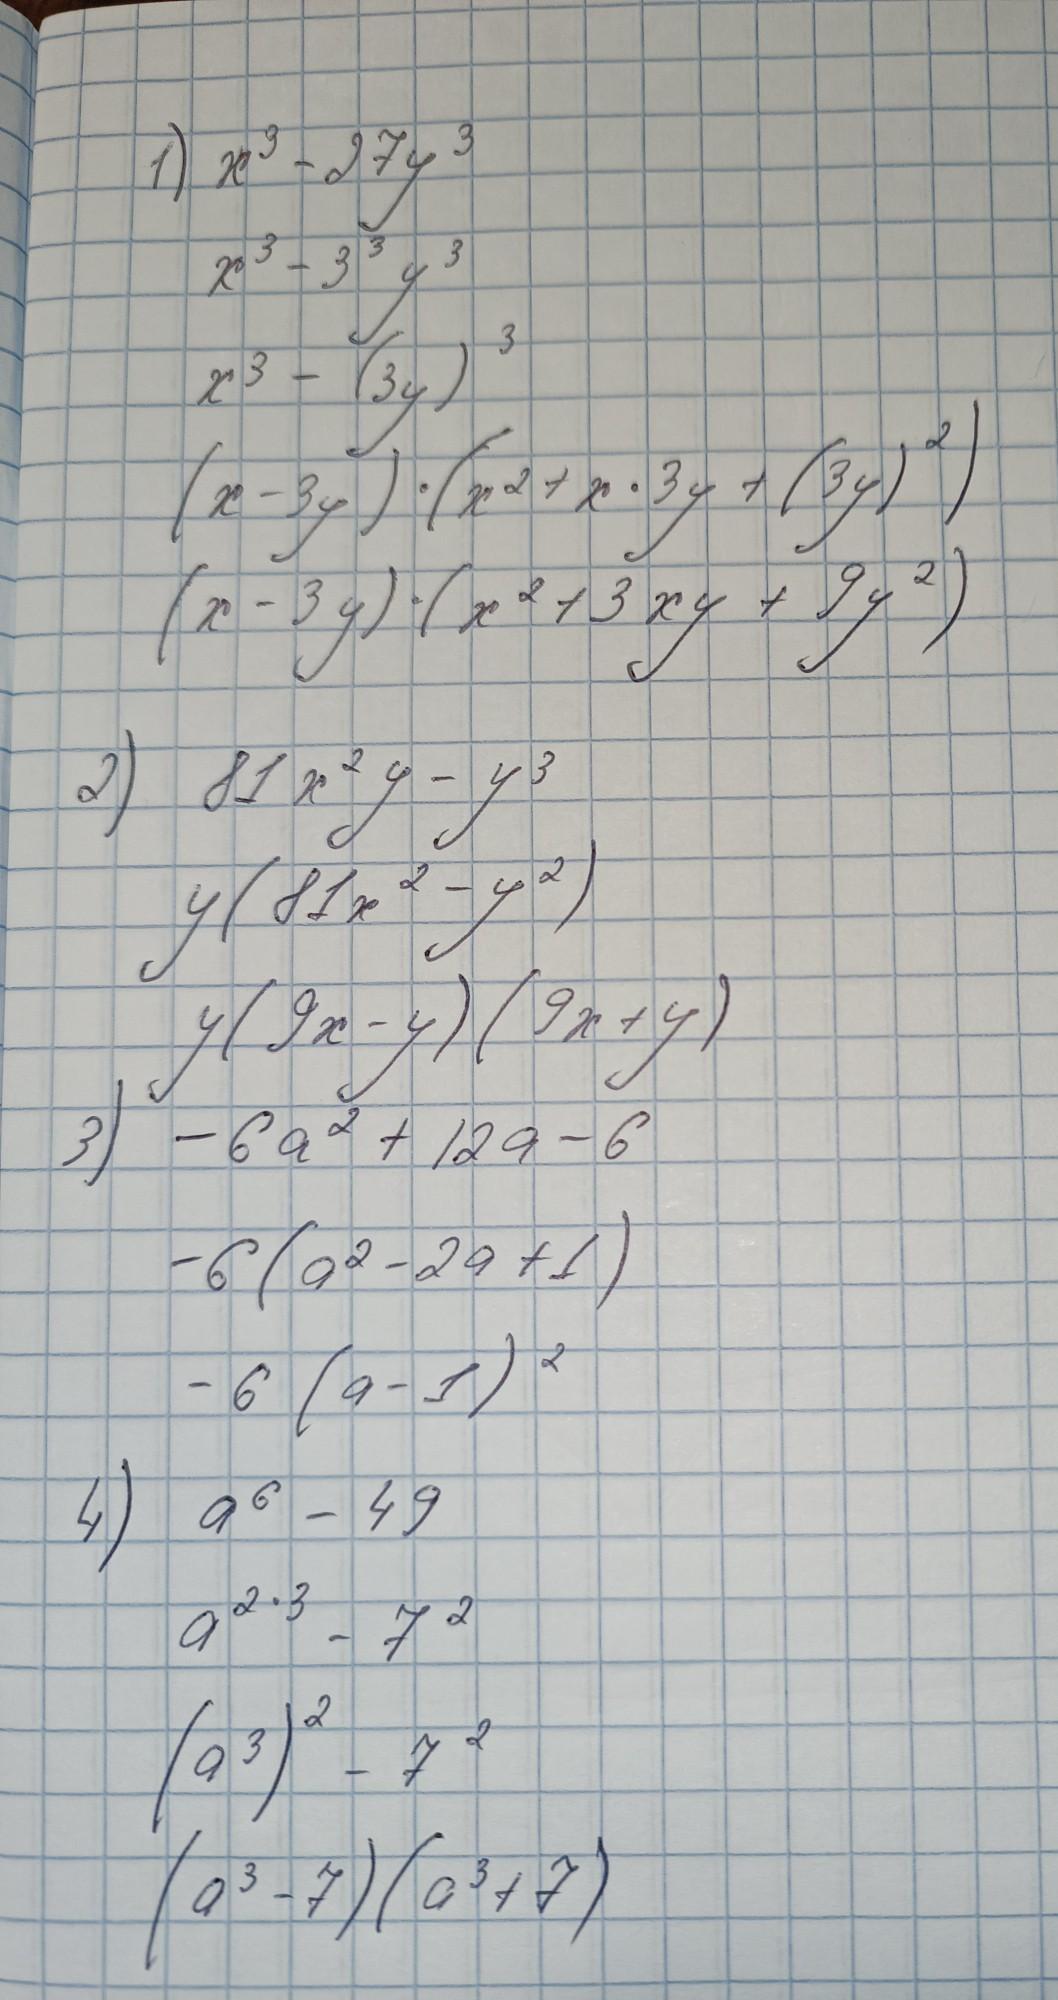 1) x³ - 27y³
x³ - 3³y³
x³ - (3y)³
(x - 3y)·(x² + x·3y + (3y)²)
(x - 3y)·(x² + 3xy + 9y²)
2) 81x²y - y³
y(81x² - y²)
y(9x - y)(9x + y)
3) -6a² + 12a - 6
-6(a² - 2a + 1)
-6(a - 1)²
4) a⁶ - 49
a²·³ - 7²
(a³)² - 7²
(a³ - 7)(a³ + 7)